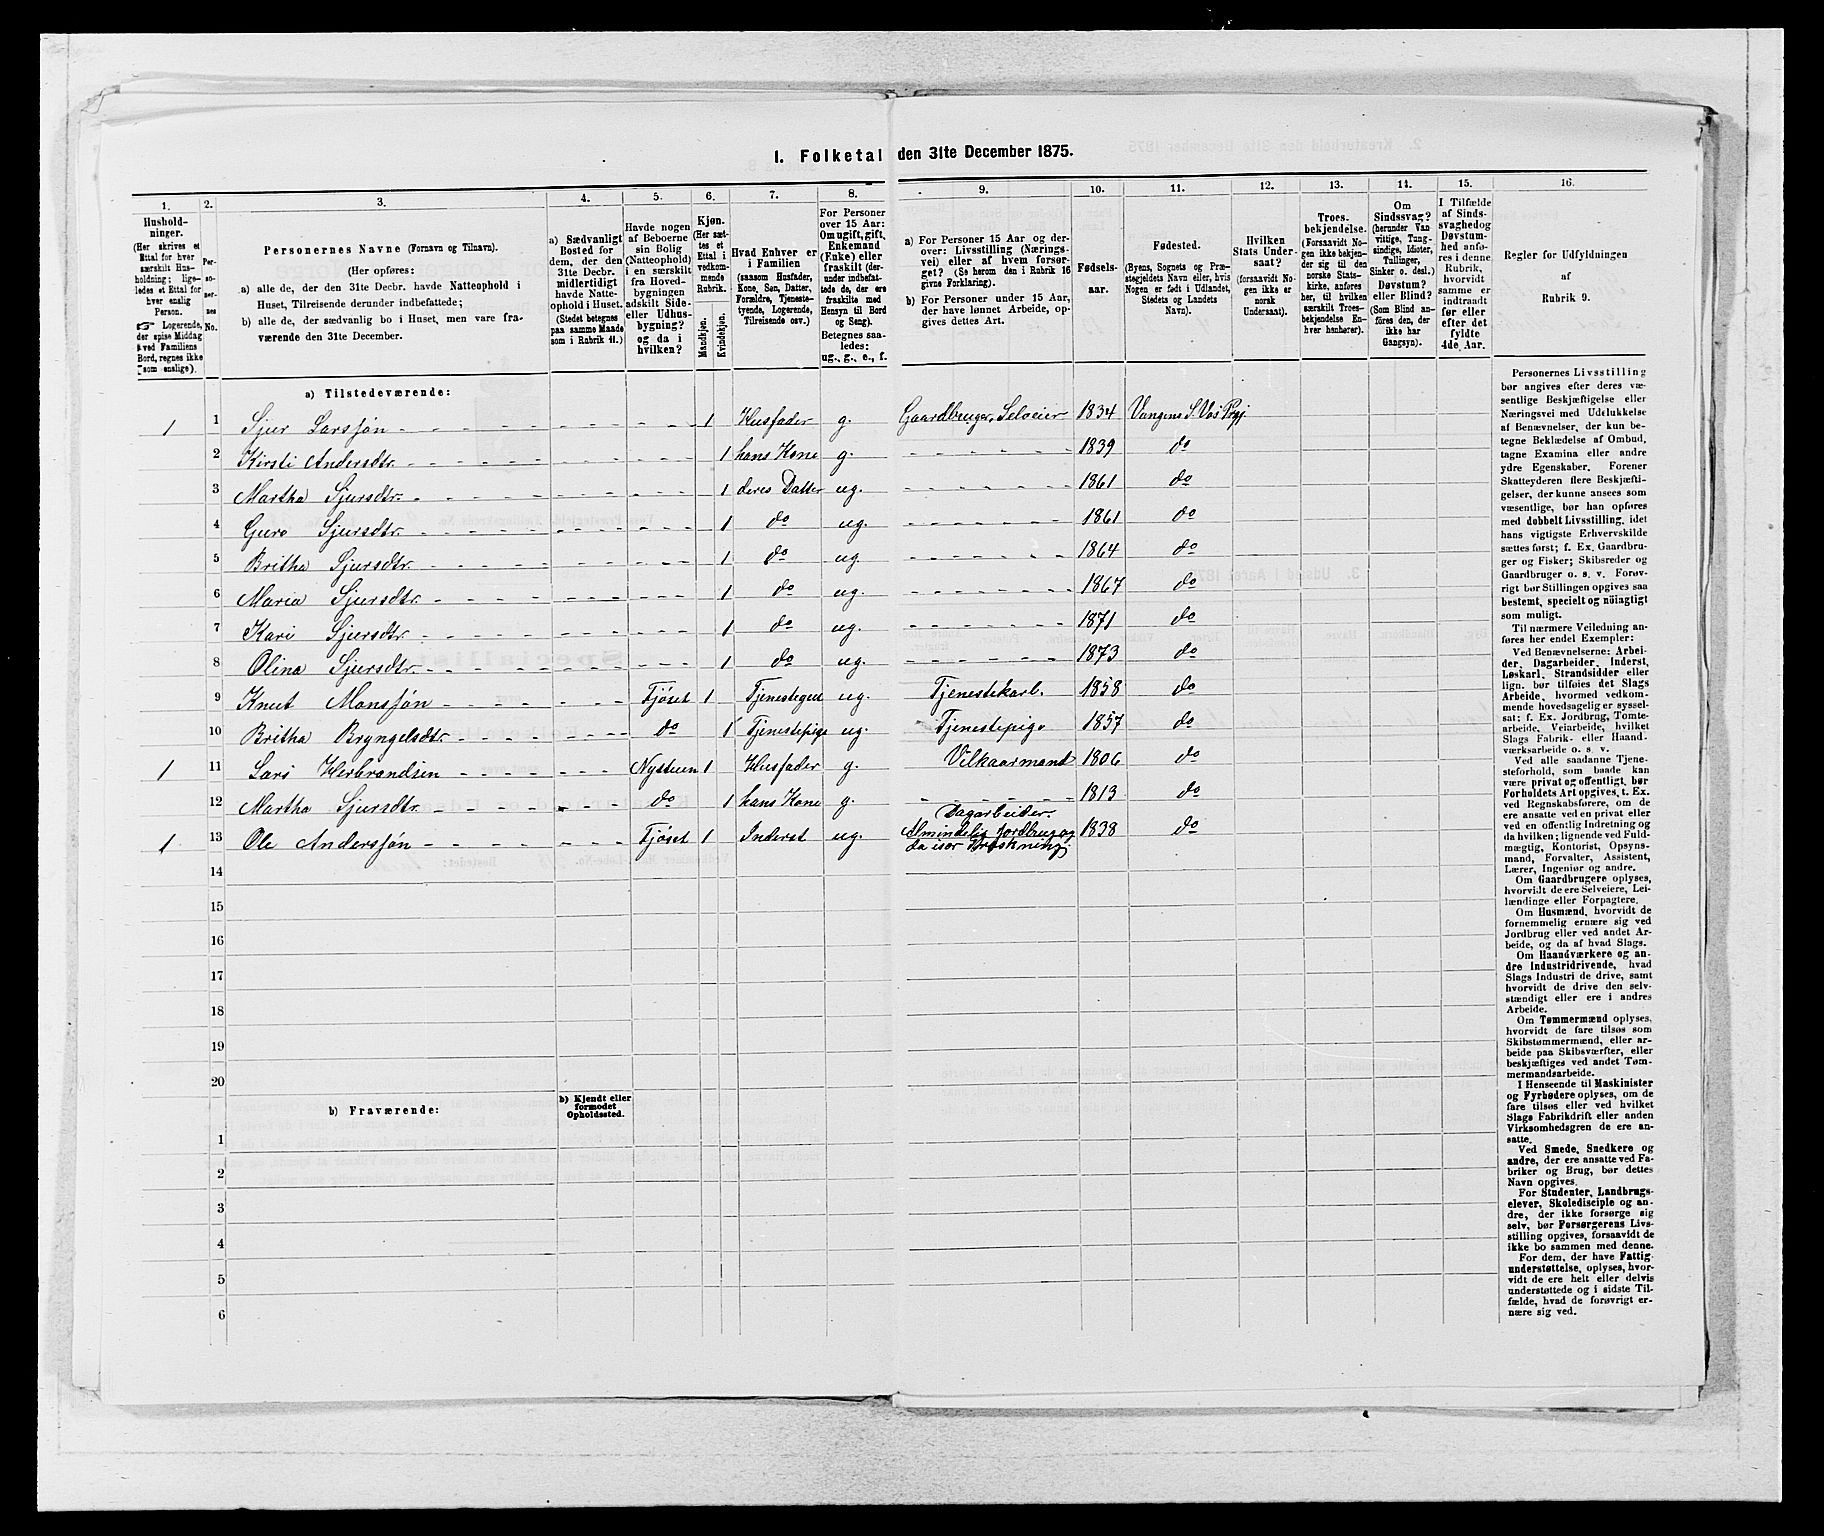 1. Folketal den 31te December 1875.
1.
2.
3.
4.
5.
6.
7.
8.
9.
10.
11.
12.
13.
14.
15.
16.
Hushold-
ninger.
(Her skrives et
Ettal for hver
særskilt Hus-
holdning; lige-
ledes et Ettal for
hver enslig
Person.
☞ Logerende,
der spise Middag
ved Familiens
Bord, regnes ikke
som enslige).
Per-
so-
ner-
nes
No.
Personernes Navne (Fornavn og Tilnavn).
(Her opføres:
a) alle de, der den 31te Decbr. havde Natteophold i
Huset, Tilreisende derunder indbefattede;
b) alle de, der sædvanlig bo i Huset, men vare fra-
værende den 31te December.
a) Sædvanligt
Bosted for
dem, der den
31te Decbr.
midlertidigt
havde Natte-
ophold i Huset.
(Stedet betegnes
paa samme Maade
som i Rubrik 11.)
Havde nogen
af Beboerne
sin Bolig
(Natteophold)
i en særskilt
fra Hoved-
bygningen
adskilt Side-
eller Udhus-
bygning?
og da i
hvilken?
Kjøn.
(Her sæt-
tes et
Ettal i
vedkom-
mende
Rubrik.
Mandkjøn.
Kvindekjøn.
Hvad Enhver er
i Familien
(saasom Husfader,
Kone, Søn, Datter,
Forældre, Tjeneste-
tyende, Logerende,
Tilreisende osv.)
For Personer
over 15 Aar:
Om ugift, gift,
Enkemand
(Enke) eller
fraskilt (der-
under indbefat-
tede de, der ere
fraskilte med
Hensyn til Bord
og Seng).
Betegnes saa-
ledes:
ug., g., e., f.
a) For Personer 15 Aar og der-
over: Livsstilling (Nærings-
vei) eller af hvem forsør-
get? (Se herom den i Rubrik 16
givne Forklaring).
b) For Personer under 15 Aar,
der have lønnet Arbeide, op-
gives dettes Art.
Fødsels-
aar.
Fødested.
(Byens, Sognets og Præ-
stegjeldets Navn eller, hvis
Nogen er født i Udlandet,
Stedets og Landets
Navn).
Hvilken
Stats Under-
saat?
(forsaavidt No-
gen ikke er
norsk
Undersaat).
Troes-
bekjendelse.
(Forsaavidt No-
gen ikke bekjen-
der sig til den
norske Stats-
kirke, anføres
her, til hvilken
særskilt Troes-
bekjendelse En-
hver henhører).
Om
Sindssvag?
(herunder Van-
vittige, Tung-
sindige, Idioter,
Tullinger,
Sinker o. desl.)
Døvstum?
eller Blind?
(Som Blind an-
føres den, der
ikke har
Gangsyn).
I Tilfælde
af Sinds-
svaghedog
Døvstum-
hed anfø-
res i denne
Rubrik,
hvorvidt
samme er
indtraadt
før eller
efter det
fyldte
4de Aar.
Regler for Udfyldningen
af
Rubrik 9.
a) Tilstedeværende:
1 1 Sjur Larssøn 1 Husfader g. Gaardbruger, Selveier 1834 Vangens S. Vos Prgj.
2 Kirsti Andersdtr. 1 hans Kone g. 1839 do
3 Martha Sjursdtr. 1 deres Datter ug. 1861 do
4 Guro Sjursdtr. 1 do ug. 1861 do
5 Britha Sjursdtr. 1 do ug. 1864 do
6 Maria Sjursdtr. 1 do ug. 1867 do
7 Kari Sjursdtr. 1 do ug. 1871 do
8 Olina Sjursdtr. 1 do ug. 1873 do
9 Knut Monssøn Fjøset 1 Tjenestegut ug. Tjenestekarl. 1858 do
10 Britha Bryngelsdtr. do 1 Tjenestepige ug. Tjenestepige 1857 do
1 11 Lars Herbrandsen Nystuen 1 Husfader g. Vilkaarmand 1806 do
12 Martha Sjursdtr. do 1 hans Kone g. 1813 do
1 13 Ole Anderssøn Fjøset 1 Inderst ug. Dagarbeider. 1838 do
Almindelig Jordbrug og
da især Træskning
14
15
16
17
18
19
20
b) Fraværende:
b) Kjendt eller
formodet
Opholdssted.
1
2
3
4
5
6
Personernes Livsstilling
bør angives efter deres væ-
sentlige Beskjæftigelse eller
Næringsvei med Udelukkelse
af Benævnelser, der kun be-
tegne Beklædelse af Ombud,
tagne Examina eller andre
ydre Egenskaber. Forener
Skatteyderen flere Beskjæfti-
gelser, der kunne ansees som
væsentlige, bør han opføres
med dobbelt Livsstilling, idet
hans vigtigste Erhvervskilde
sættes først; f. Ex. Gaardbru-
ger og Fisker; Skibsreder og
Gaardbruger o. s. v. Forøv-
rigt bør Stillingen opgives saa
bestemt, specielt og nøiagtigt
som muligt.
Til nærmere Veiledning an-
føres her endel Exempler:
Ved Benævnelserne: Arbei-
der, Dagarbeider, Inderst,
Løskarl, Strandsidder eller
lign. bør tilføies det Slags
Arbeide, hvormed vedkom-
mende hovedsagelig er syssel-
sat; f. Ex. Jordbrug, Tomte-
arbeide, Veiarbeide, hvilket
Slags Fabrik- eller Haand-
værksarbeide o. s. v.
Ved alle saadanne Tjene-
steforhold, som baade kan
være privat og offentligt, bør
Forholdets Art opgives, t. Ex.
ved Regnskabsførere, om de
ere ansatte ved en privat eller
ved en offentlig Indretning og
da hvilken; lignende ved Fuld-
mægtig, Kontorist, Opsyns-
mand, Forvalter, Assistent,
Lærer, Ingeniør og andre.
Om Gaardbrugere oplyses,
hvorvidt de ere Selveiere, Lei-
lændinge eller Forpagtere.
Om Husmænd, hvorvidt de
fornemmelig ernære sig ved
Jordbrug eller ved andet Ar-
beide, og da af hvad Slags.
Om Haandværkere og an-
dre Industridrivende, hvad
Slags Industri de drive, samt
hvorvidt de drive den selv-
stændigt eller ere i andres
Arbeide.
Om Tømmermænd oplyses,
hvorvidt de fare tilsøs som
Skibstømmermænd, eller ar-
beide paa Skibsværfter, eller
beskjæftiges ved andet Tøm-
mermandsarbeide.
I Henseende til Maskinister
og Fyrbødere oplyses, om de
fare tilsøs eller ved hvilket
Slags Fabrikdrift eller anden
Virksomhedsgren de ere an-
satte.
Ved Smede, Snedkere og
andre, der ere ansatte ved Fa-
briker og Brug, bør dettes
Navn opgives.
For Studenter, Landbrugs-
elever, Skoledisciple og an-
dre, der ikke forsørge sig
selv, bør Forsørgerens Livs-
stilling opgives, forsaavidt de
ikke bo sammen med denne.
For dem, der have Fattig-
understøttelse, oplyses, hvor-
vidt de ere helt eller delvis
understøttede og i sidste Til-
fælde, hvad de forøvrigt er-
nære sig ved.